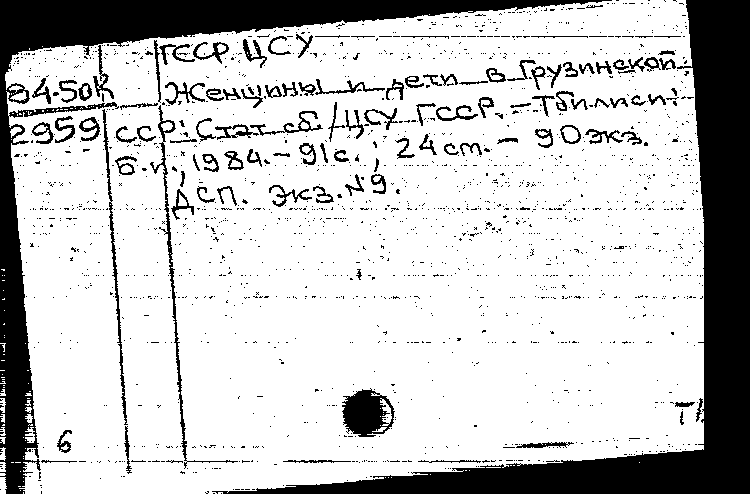 ГССР. ЦСУ.
84-50К
Женщины и дети в Грузинской
2959
ССР: Стат. сб. / ЦСУ ГССР. – Тбилиси:
Б.и., 1984. – 91 с.; 24 cm. – 90 экз.
ДСП. Экз. №9.
6